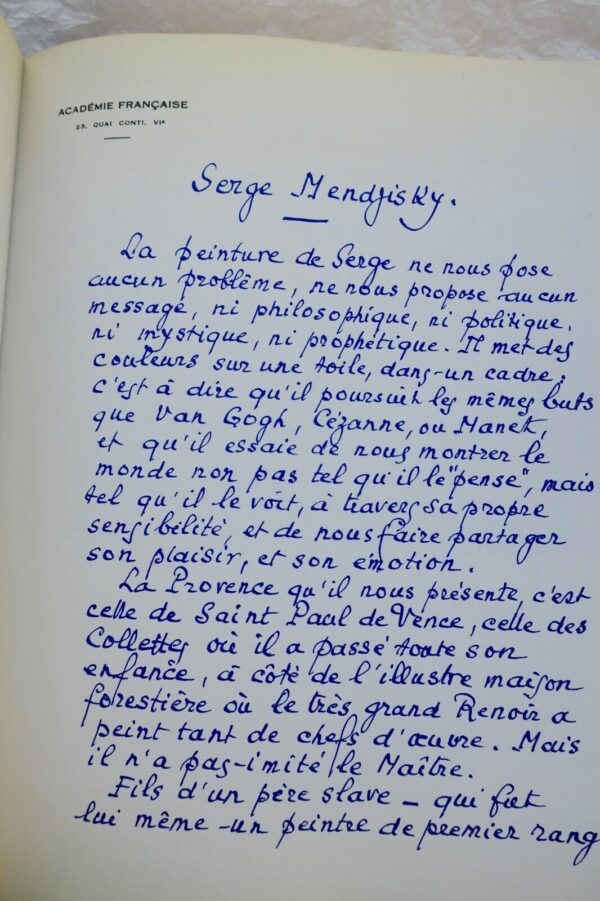 ACADÉMIE FRANÇAISE
23, QUAI CONTI, VIe
Serge Mendjisky.
La peinture de Serge ne nous pose
aucun problème, ne nous propose aucun
message, ni philosophique, ni politique,
ni mystique, ni prophétique. Il met des
couleurs sur une toile, dans un cadre;
c'est à dire qu'il poursuit les mêmes buts
que Van Gogh, Cézanne, ou Manet,
et qu'il essaie de nous montrer le
monde non pas tel qu'il le "pense", mais
tel qu'il le voit, à travers sa propre
sensibilité, et de nous faire partager
son plaisir, et son émotion.
La Provence qu'il nous présente, c'est
celle de Saint Paul de Vence, celle des
Collettes où il a passé toute son
enfance, à côté de l'illustre maison
forestière où le très grand Renoir a
peint tant de chefs d'œuvre. Mais
il n'a pas imité le Maître.
Fils d'un père slave – qui fut
lui même un peintre de premier rang